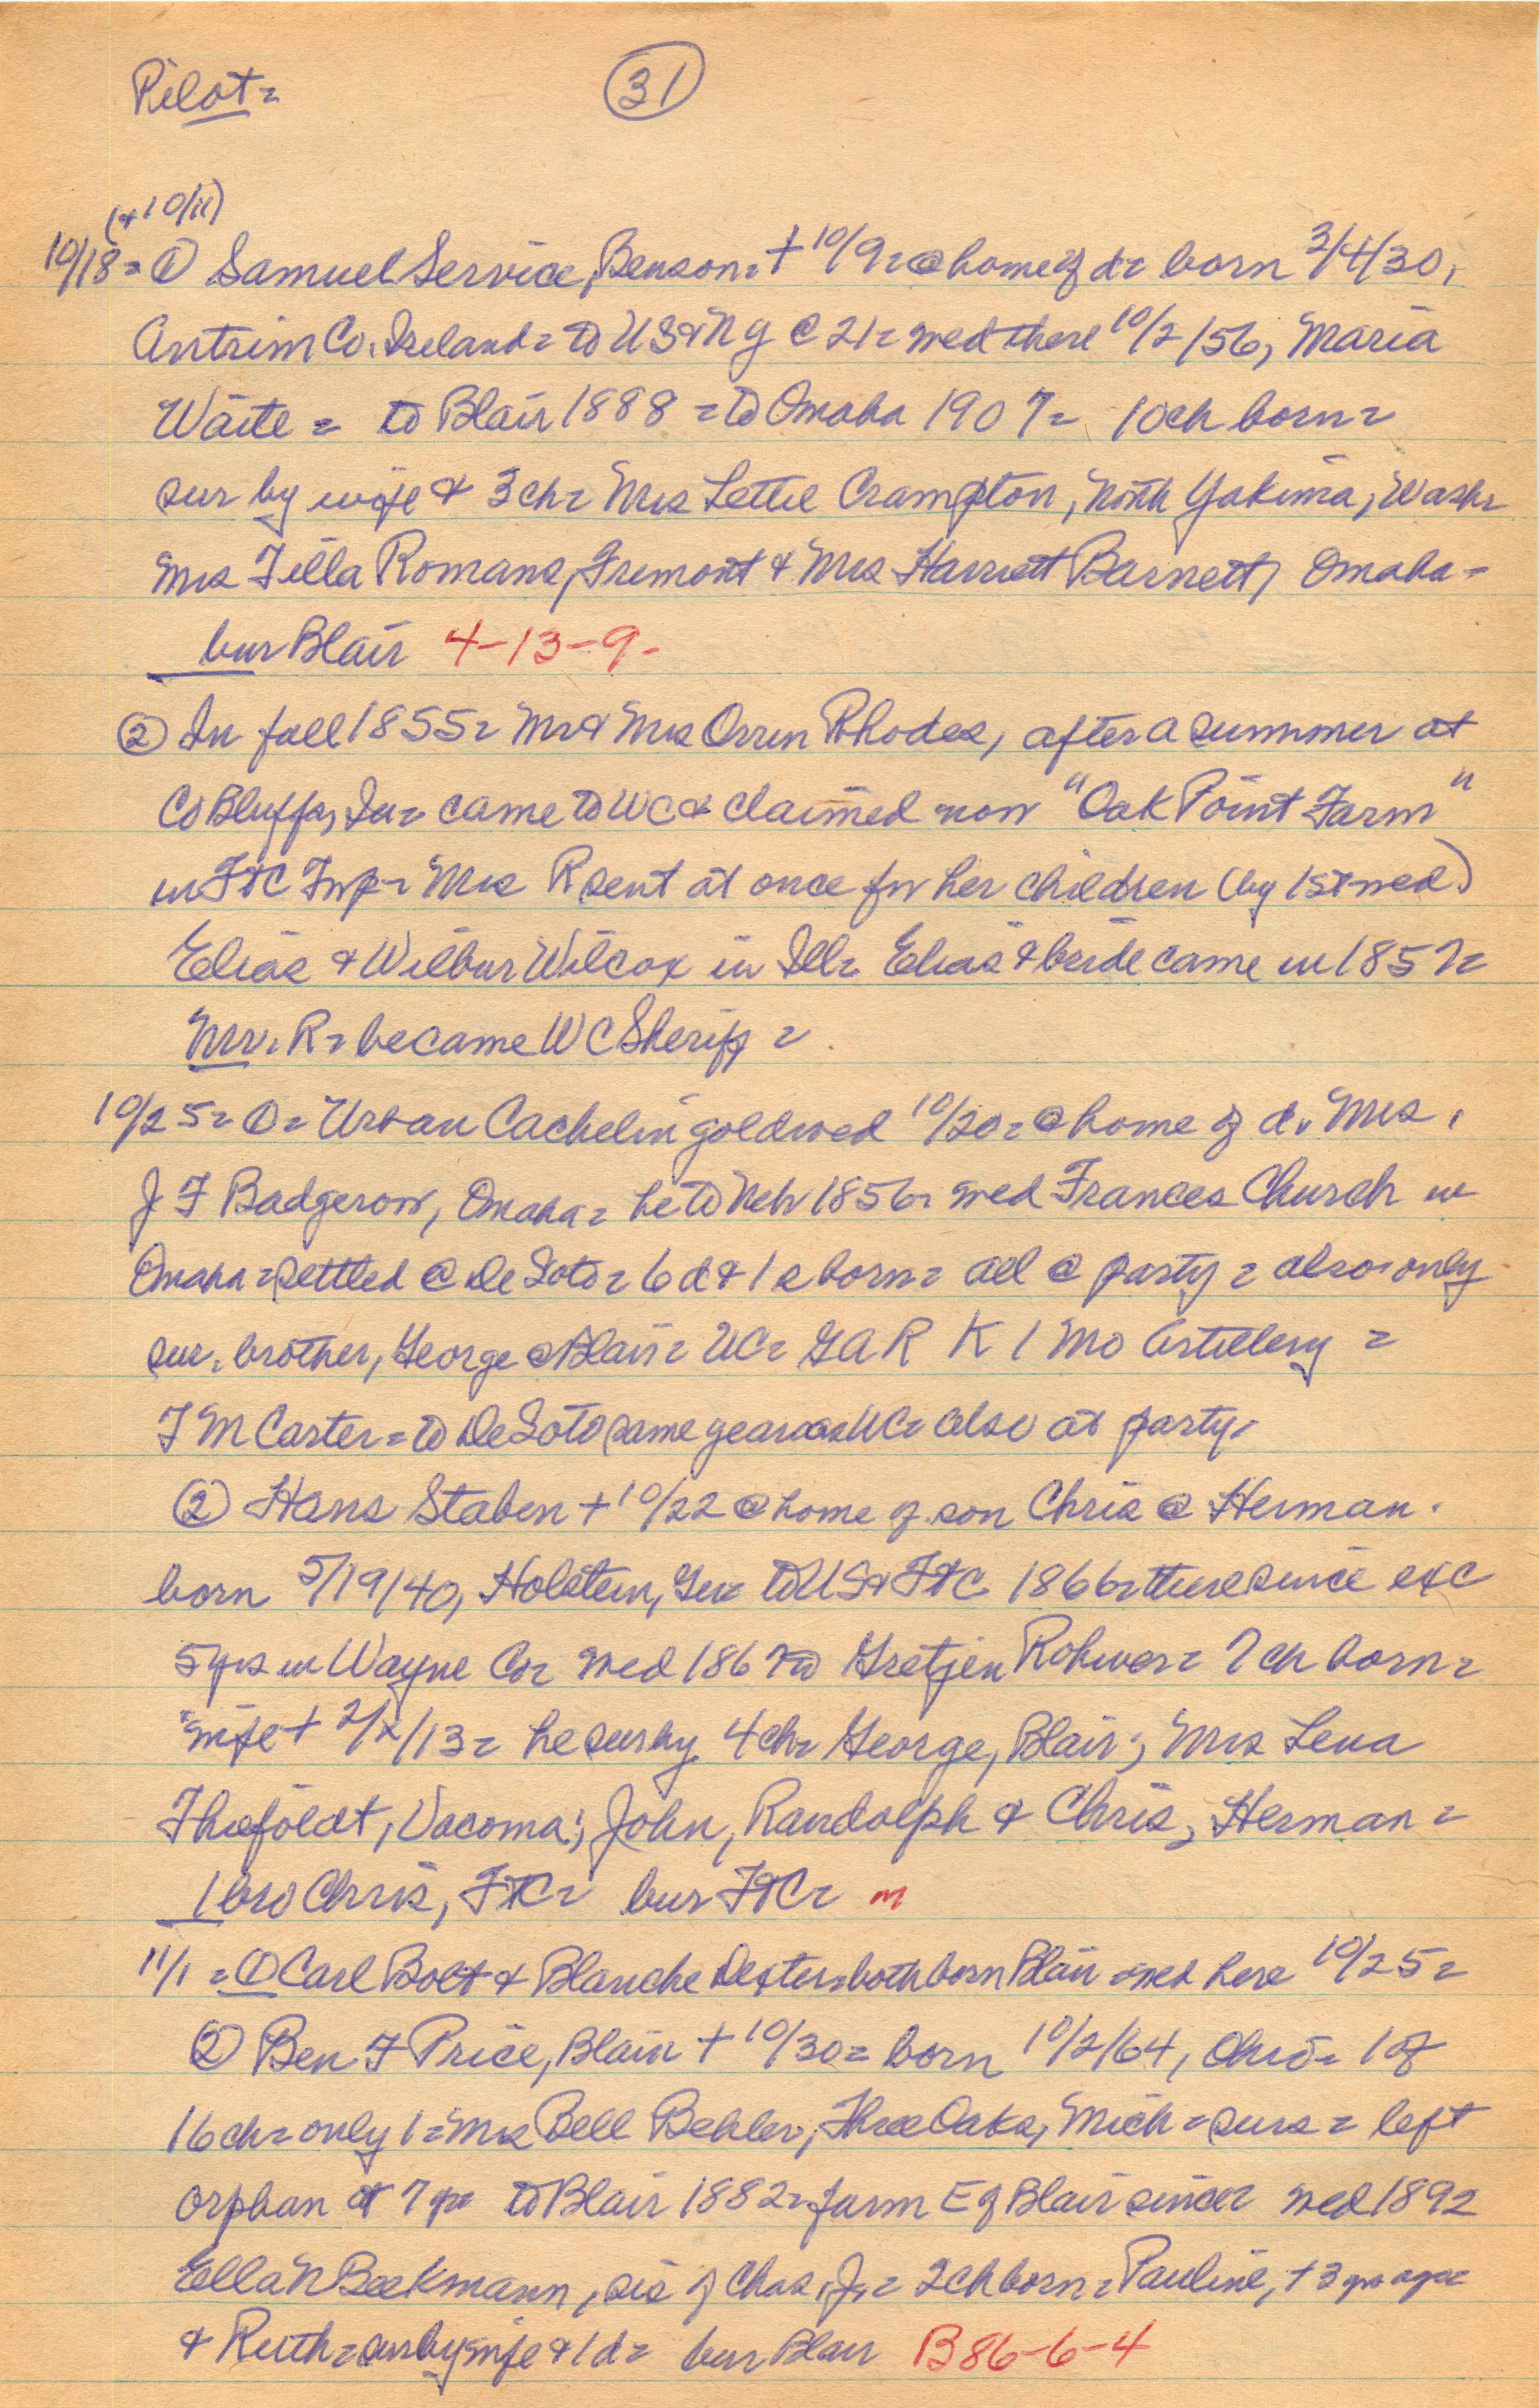 Pilot =
31
(+ 10/11)
10/18 = ① Samuel Service, Benson = + 10/9 = @ home of d = born 3/4/30,
Antrim Co. Ireland = to US & N Y @ 21 = wed there 10/2/56, Maria
Waite = to Blair 1888 = to Omaha 1907 = 10 ch born =
sur by wife & 3 ch = Mrs Lettie Crampton, North Yakima, Wash =
Mrs Tilla Romans, Fremont & Mrs Harriett Barnett, Omaha =
bur Blair 4-13-9-
② In fall 1855 = Mr & Mrs Orren Rhodes, after a summer at
Co Bluffs, Ia = came to WC & claimed now "Oak Point Farm"
in FTC Twp = Mrs R sent at once for her children (by 1st wed)
Elias & Wilbur Wilcox in Ill = Elias & bride came in 1857 =
Mr. R = became WC Sheriff =
10/25 = ① = Urban Cachelin gold wed 10/20 = @ home of d. Mrs.
J F Badgerow, Omaha = he to Neb 1856 = wed Frances Church in
Omaha = settled @ De Soto = 6 d & 1 s born = all @ party = also only
sur. brother, George @ Blair = UC = GAR K 1 Mo Artillery =
T M Carter = to De Soto same year as UC = also at party.
② Hans Staben + 10/22 @ home of son Chris @ Herman.
born 5/19/40, Holstein, Ger = to US & FTC 1866 = there since exc
5 yrs in Wayne Co = wed 1867 to Gretjen Rohwer = 7 ch born =
wife + 2/ /13 = he sur by 4 ch = George, Blair; Mrs Lena
Thiefoldt, Vacoma; John, Randolph & Chris, Herman =
1 bro Chris, FTC = bur FTC = m
11/1 = ① Carl Bolt & Blanche Dexter = both born Blair = wed here 10/25 =
② Ben F Price, Blair + 10/30 = born 10/2/64, Ohio = 1 of
16 ch = only 1 = Mrs Bell Behler, Three Oaks, Mich = surs = left
orphan at 7 yr = to Blair 1882 = farm E of Blair since = wed 1892
Ella N Beekmann, sis of Chas. J. = 2 ch born = Pauline, + 3 yrs ago =
& Ruth = sur by wife & 1 d = bur Blair B 86-6-4